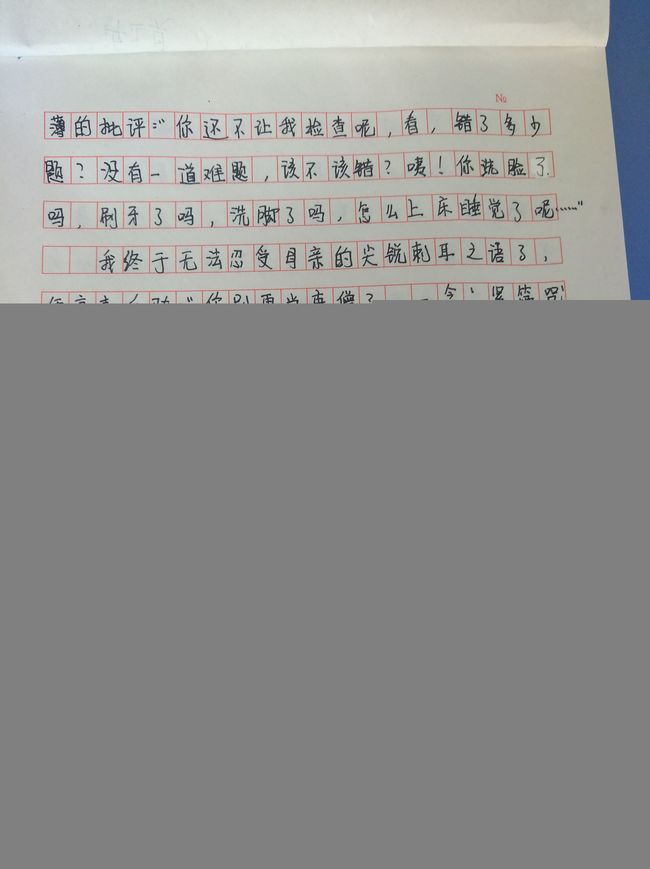 No
薄的批评:“你还不让我检查呢,看,错了多少
题?没有一道难题,该不该错?咦!你洗脸了.
吗,刷牙了吗,洗脚了吗,怎么上床睡觉了呢……”
我终于无法忍受母亲的尖锐刺耳之语了,
你别再当唐僧了